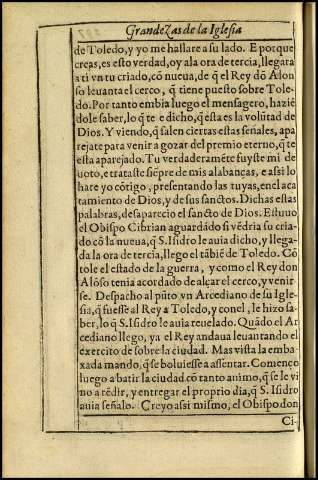 Grandezas de la Iglesia
de Toledo, y yo me hallare a su lado. E porque
creas, es esto verdad, oy ala ora de tercia, llegara
a ti vn tu criado, cō nueua, de q̄ el Rey dō Alon
so leuanta el cerco, q̄ tiene puesto sobre Tole-
do. Por tanto embia luego el mensagero, hazié
dole saber, lo q̄ te e dicho, q̄ esta es la volūtad de
Dios. Y viendo, q̄ salen ciertas estas señales, apa
rejate para venir a gozar del premio eterno, q̄ te
esta aparejado. Tu verdaderamēte fuyste mi de
uoto, e trataste siēpre de mis alabanças, e assi lo
hare yo cōtigo, presentando las tuyas, enel aca
tamiento de Dios, y de sus sanctos. Dichas estas
palabras, desaparecio el sancto de Dios. Estuuo
el Obispo Ciprian aguardādo si vēdria su cria-
do cō la nueua, q̄ S. Isidro le auia dicho, y llega-
da la ora de tercia, llego el tābiē de Toledo. Cō
tole el estado de la guerra, y como el Rey don
Alōso tenia acordado de alçar el cerco, y venir
se. Despacho al pūto vn Arcediano de su Igle-
sia, q̄ fuesse al Rey a Toledo, y con el, le hizo sa-
ber, lo q̄ S. Isidro le auia reuelado. Quādo el Ar
cediano llego, ya el Rey andaua leuantando el
exercito de sobre la ciudad. Mas vista la emba-
xada mando, q̄ se boluiesse a assentar. Començo
luego a batir la ciudad cō tanto animo, q̄ se le vi
no a rēdir, y entregar el proprio dia, q̄ S. Isidro
auia señalo. Creyo assi mismo, el Obispo don
Ci-